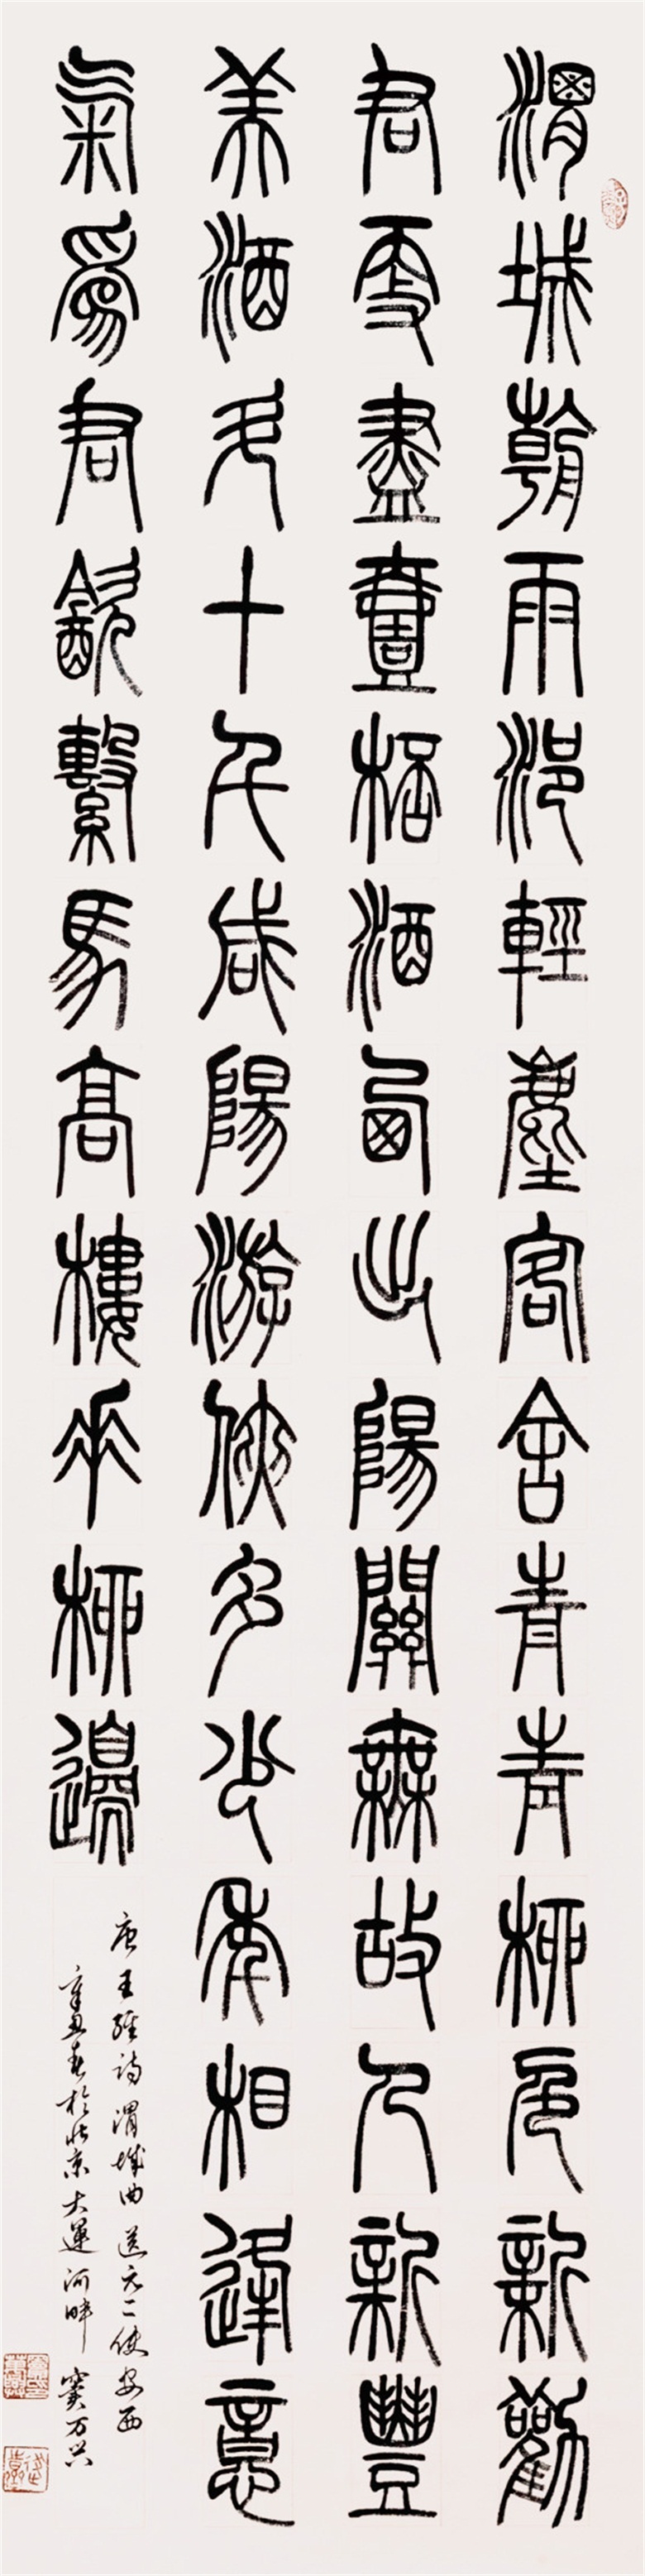 渭城朝雨浥輕塵客舍青青柳色新勸
君更盡壹桮酒西出陽關無故人新豐
美酒斗十千咸陽游俠多少年相逢意
氣爲君飲繫馬高樓垂柳邊
唐王維詩渭城曲送元二使安西
辛丑春於北京大運河畔竇万兴